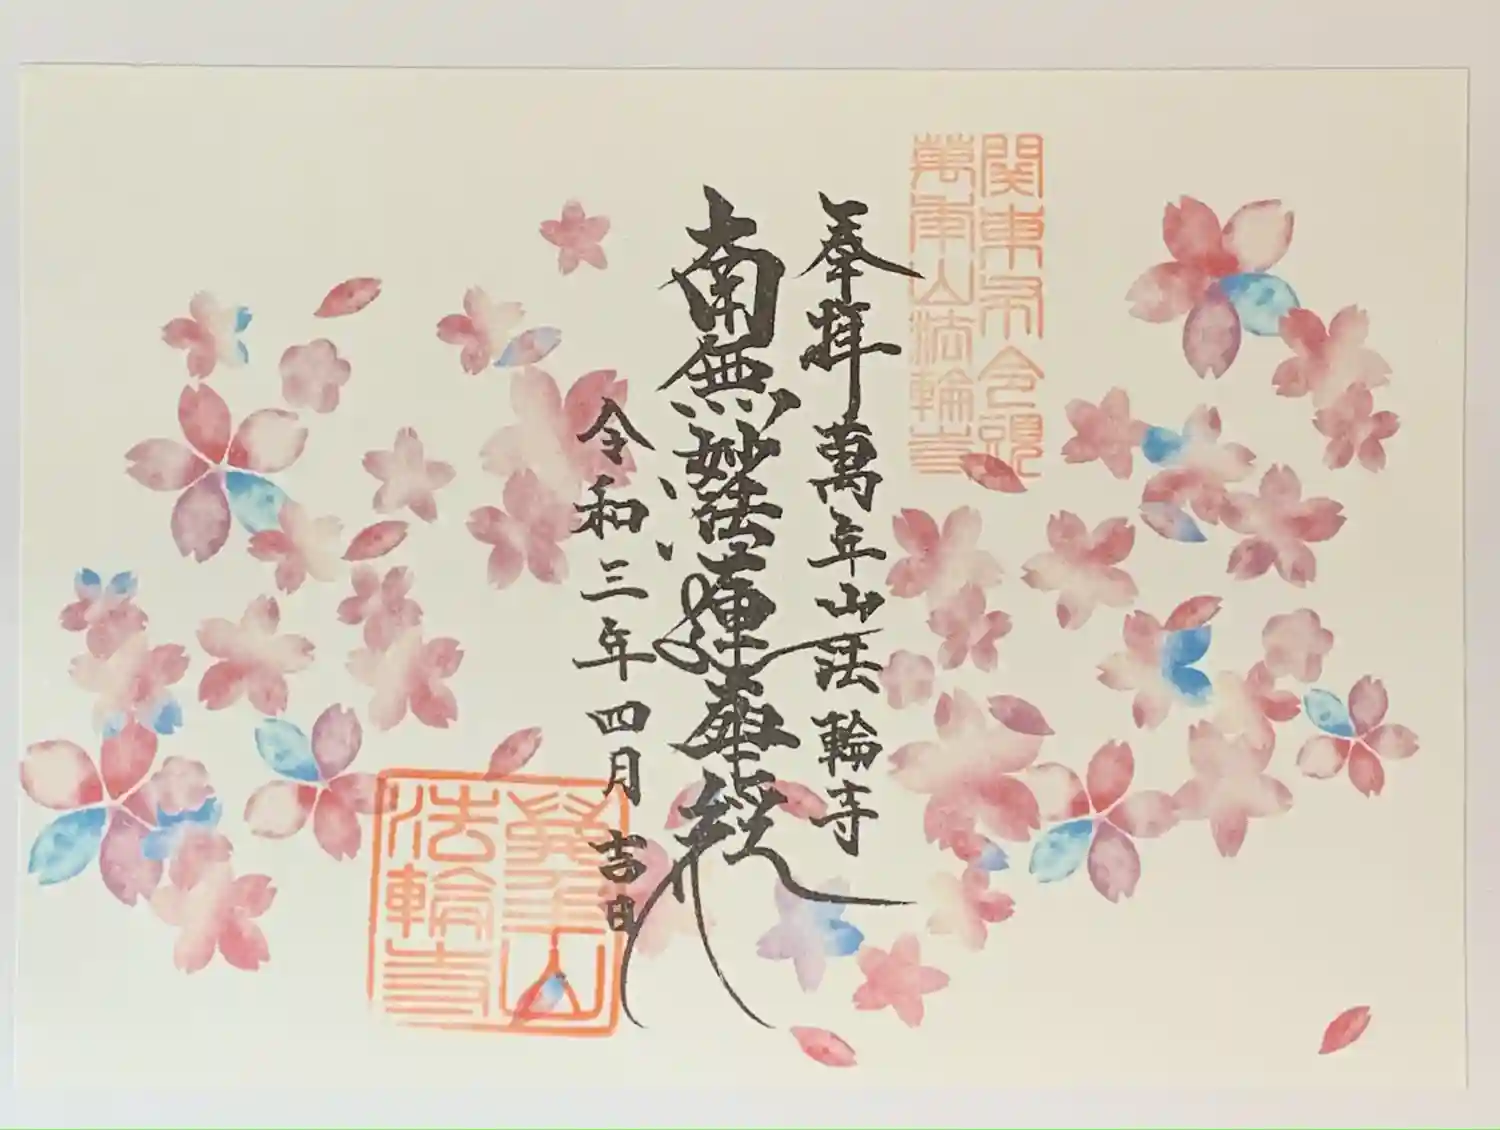 関東布令頭
萬年山法輪寺
奉拝 萬年山法輪寺
南無妙法蓮華経
令和三年四月吉日
萬年山
法輪寺